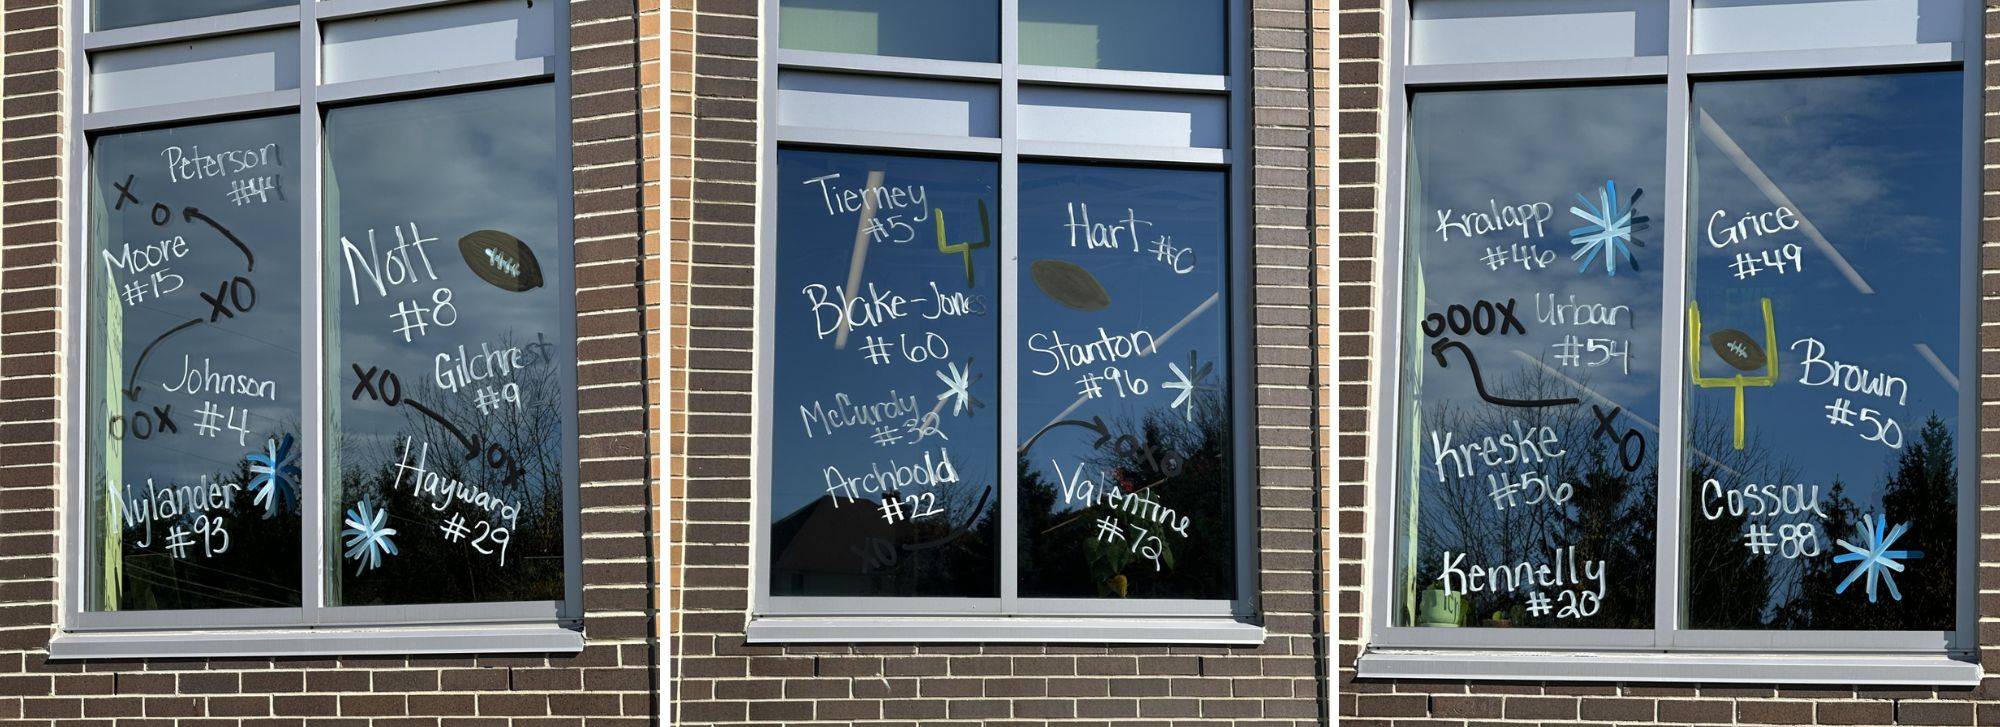 Peterson
#44
X
O
Moore
#15
XO
Johnson
#4
OOX
Nylander
#93
Nott
#8
Gilchrest
#9
XO
OX
Hayward
#29
Tierney
#5
Blake-Jones
#60
McCurdy
#32
Archbold
#22
XO
Hart #0
Stanton
#96
OXO
Valentine
#72
Kralapp
#46
OOOX
Urban
#54
XO
Kreske
#56
Kennelly
#20
Grice
#49
Brown
#50
Cossou
#88